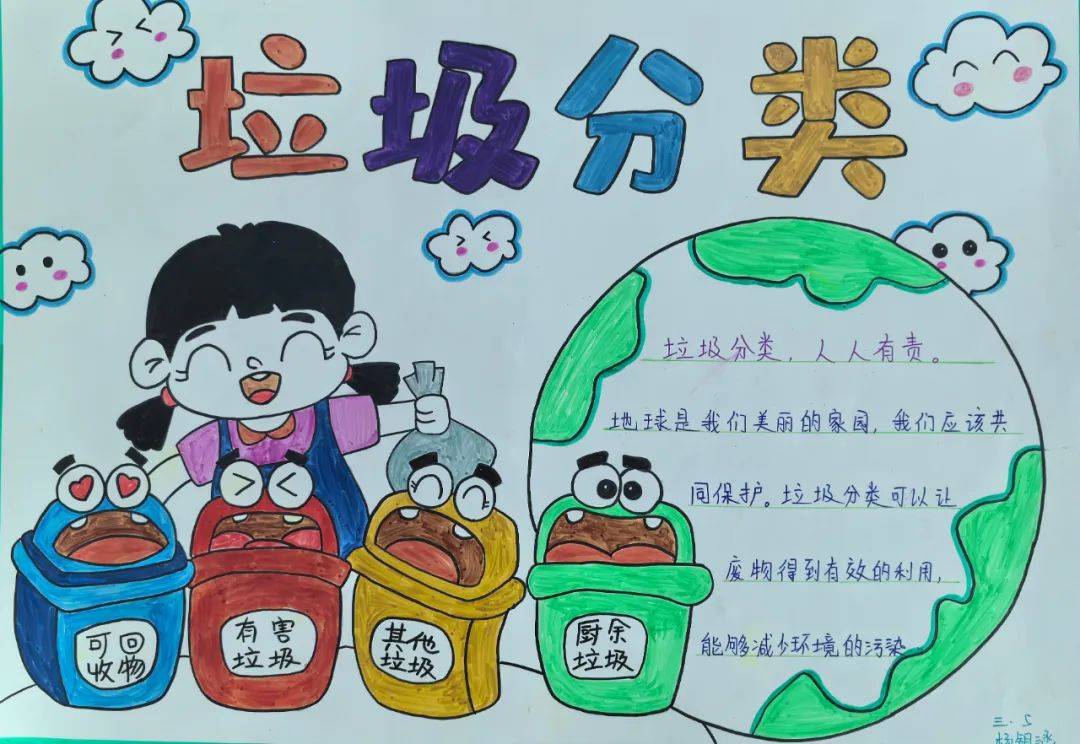 垃圾分类
垃圾分类，人人有责。
地球是我们美丽的家园，我们应该共
同保护。垃圾分类可以让
废物得到有效的利用，
能够减少环境的污染
可回
收物
有害
垃圾
其他
垃圾
厨余
垃圾
三.5